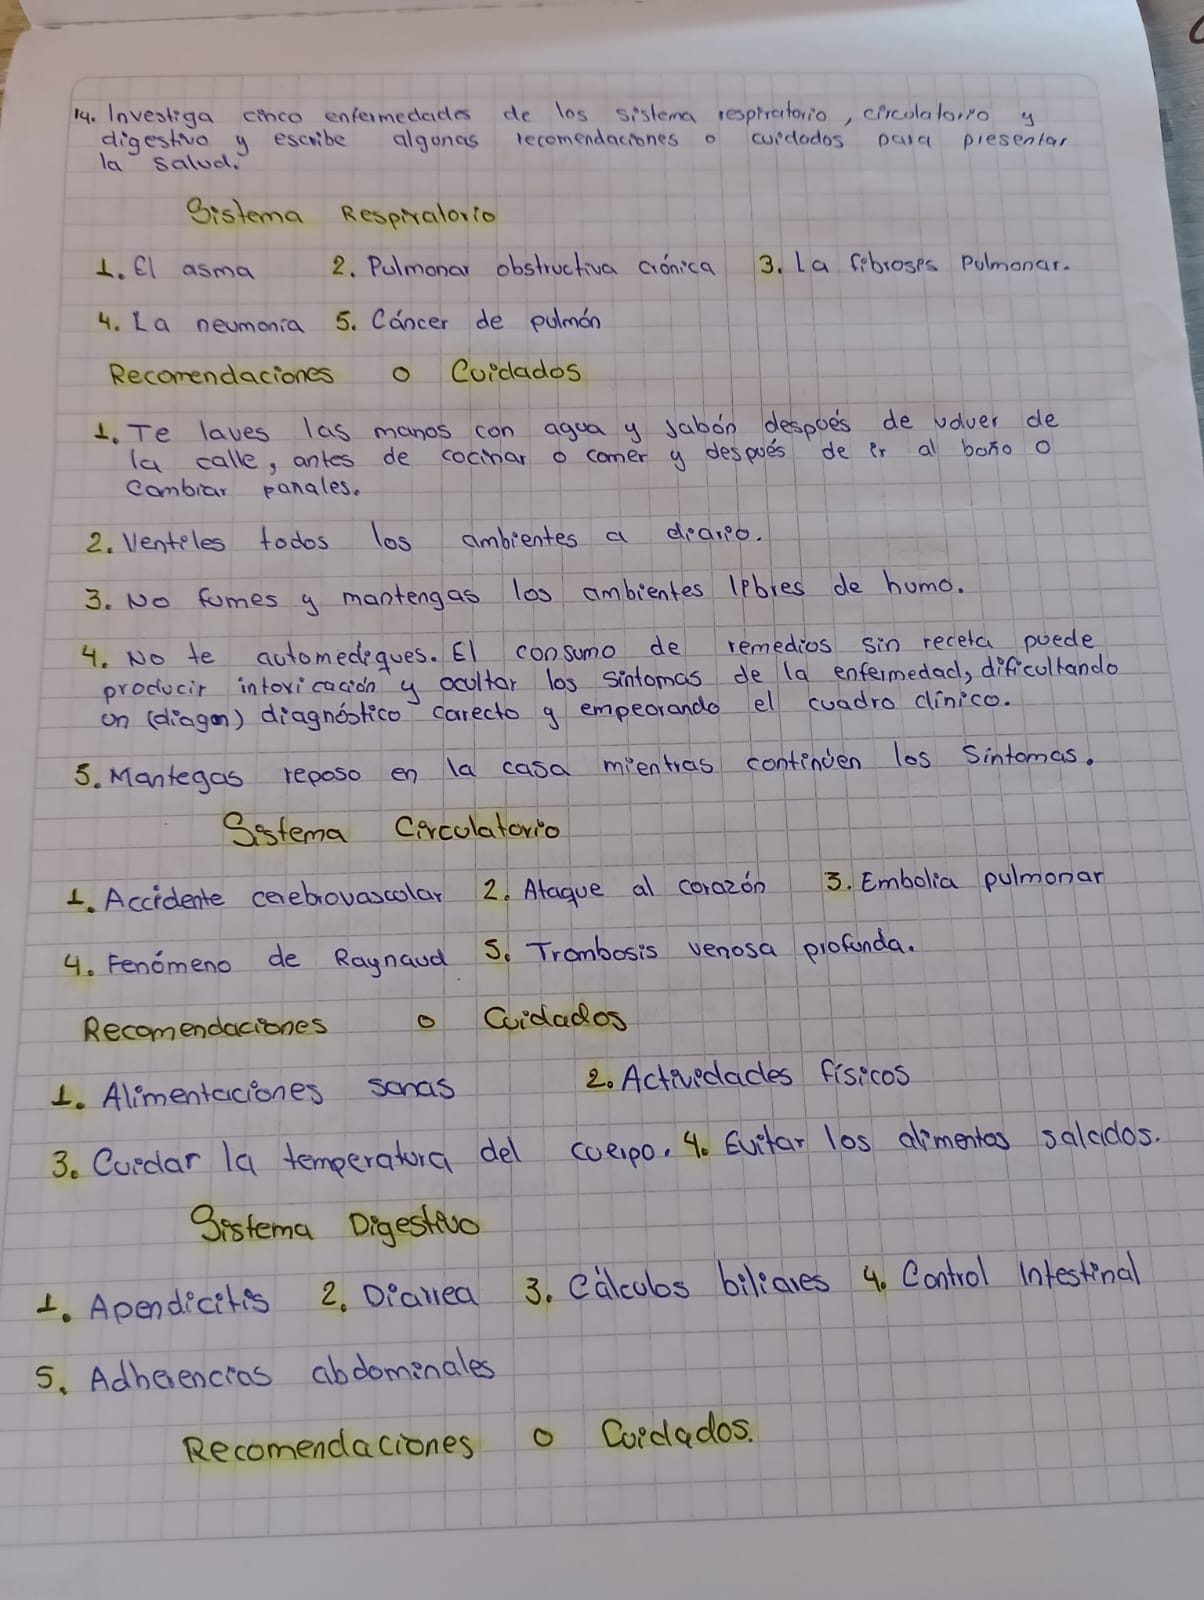 14. Investiga cinco enfermedades de los sistema respiratorio, circulatorio y
digestivo y escribe algonas recomendaciones o cuidados para presentar
la salud.
Sistema Respiratorio
1. El asma 2. Pulmonar obstructiva crónica 3. La fibrosis Pulmonar.
4. La neumonia 5. Cáncer de pulmón
Recomendaciones o Cuidados
1. Te laves las manos con agua y jabón despoés de volver de
la calle, antes de cocinar o comer y después de ir al baño o
Cambiar pañales.
2. Ventiles todos los ambientes a diario.
3. No fumes y mantengas los ambientes libres de humo.
4. No te automediques. El consumo de remedios sin receta puede
producir intoxicación y ocultar los sintomas de la enfermedad, dificultando
un (diagon) diagnóstico carecto y empeorando el cuadro clínico.
5. Mantegas reposo en la casa mientras continúen los Síntomas.
Sistema Circulatorio
1. Accidente cerebrovascular 2. Ataque al corazón 3. Embolia pulmonar
4. Fenómeno de Raynaud 5. Trombosis venosa profunda.
Recomendaciones o Cuidados
1. Alimentaciones sanas 2. Actividades físicos
3. Cuidar la temperatura del cuerpo. 4. Evitar los alimentos salados.
Sistema Digestivo
1. Apendicitis 2. Diarrea 3. Cálculos biliares 4. Control Intestinal
5. Adherencias abdominales
Recomendaciones o Cuidados.